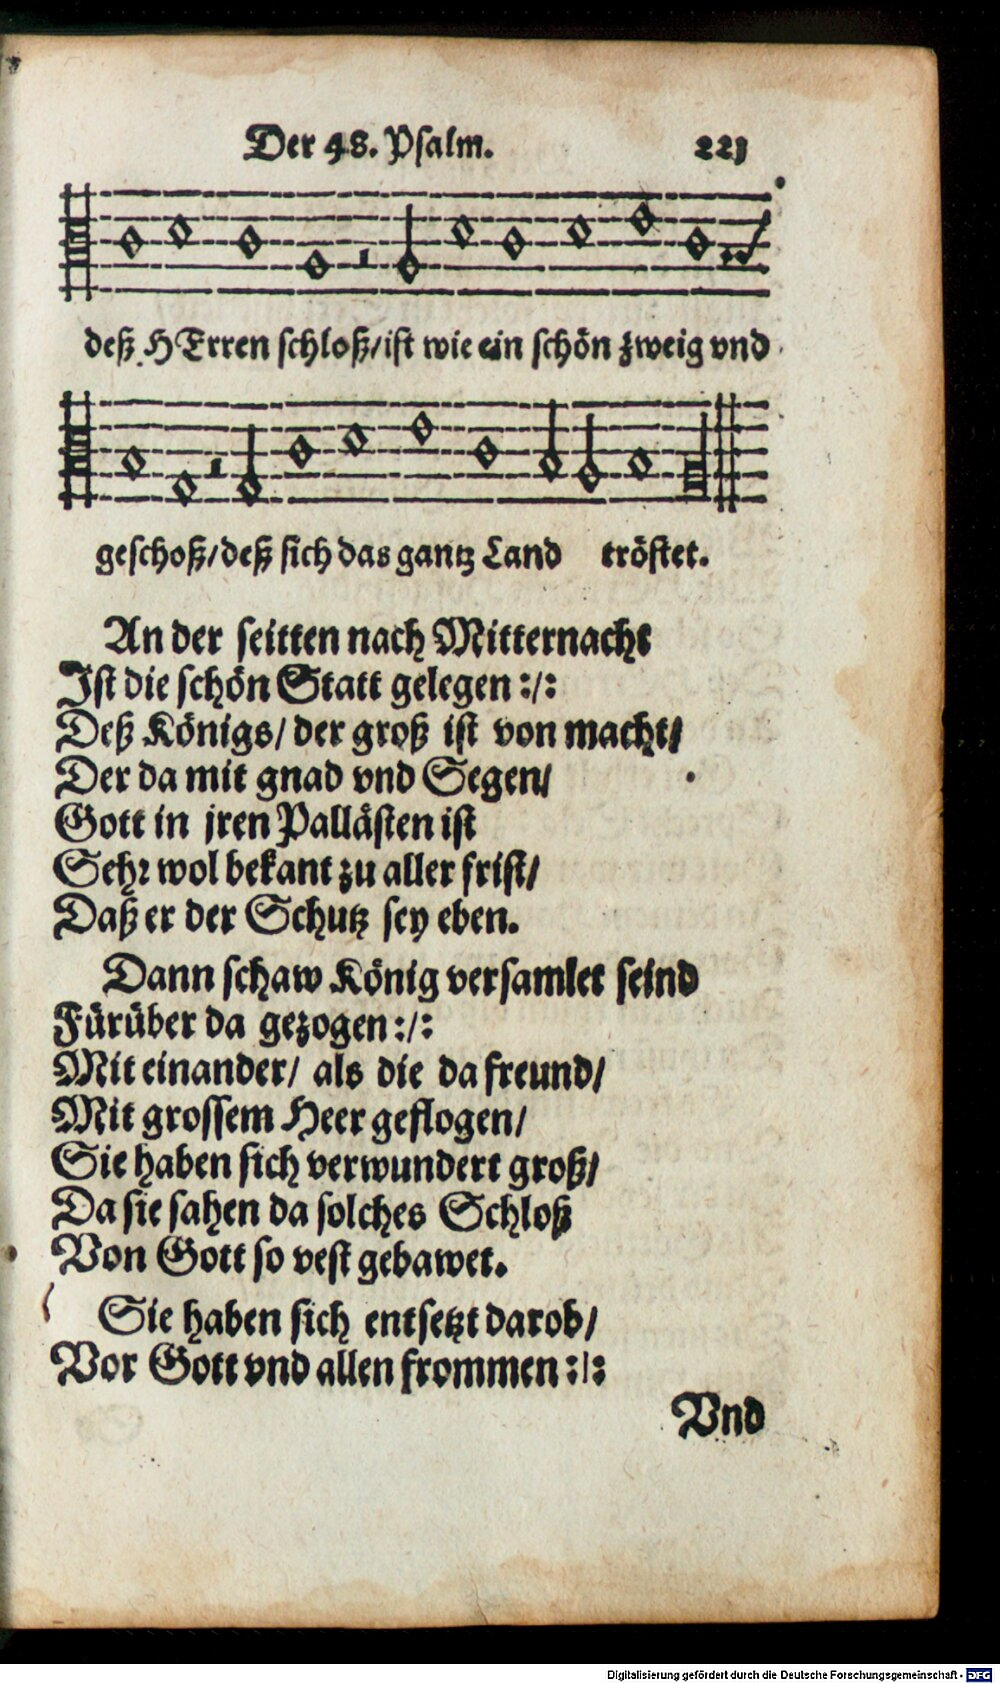 Der 48. Psalm. 221
deß HErren schloß/ist wie ein schön zweig vnd
geschoß/deß sich das gantz Land tröstet.
An der seitten nach Mitternacht
Ist die schön Statt gelegen :/:
Deß Königs/ der groß ist von macht/
Der da mit gnad vnd Segen/
Gott in jren Pallästen ist
Sehr wol bekant zu aller frist/
Daß er der Schutz sey eben.
Dann schaw König versamlet seind
Fürüber da gezogen :/:
Mit einander/ als die da freund/
Mit grossem Heer geflogen/
Sie haben sich verwundert groß/
Da sie sahen da solches Schloß
Von Gott so vest gebawet.
Sie haben sich entsetzt darob/
Vor Gott vnd allen frommen :/:
Vnd
Digitalisierung gefördert durch die Deutsche Forschungsgemeinschaft - DFG